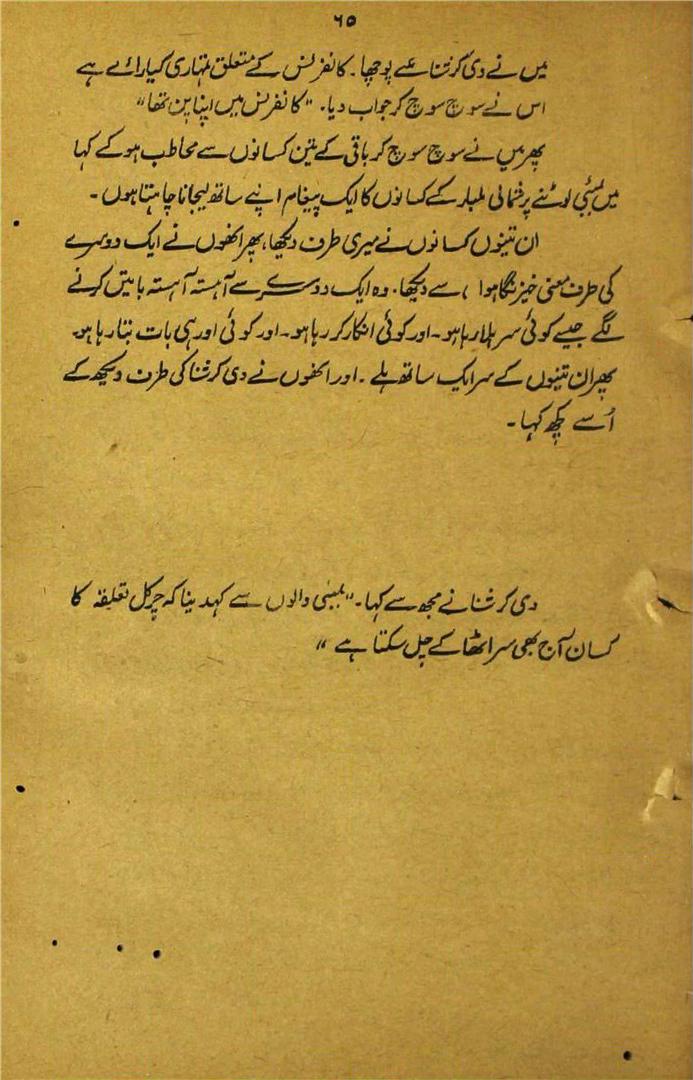 ۶۵
میں نے دی کرشنا سے پوچھا۔ کانفرنس کے متعلق تمہاری کیا رائے ہے
اس نے سوچ سوچ کر جواب دیا۔ "کانفرنس میں اپنا پن تھا"
پھر میں نے سوچ سوچ کر باقی کے تین کسانوں سے مخاطب ہو کے کہا
میں بمبئی لوٹنے پر شمالی ملبار کے کسانوں کا ایک پیغام اپنے ساتھ لیجانا چاہتا ہوں۔
ان تینوں کسانوں نے میری طرف دیکھا، پھر انھوں نے ایک دوسرے
کی طرف معنی خیز نگاہوں سے دیکھا۔ وہ ایک دوسرے سے آہستہ آہستہ باتیں کرنے
لگے جیسے کوئی سر ہلا رہا ہو۔ اور کوئی انکار کر رہا ہو۔ اور کوئی اور ہی بات بتا رہا ہو۔
پھر ان تینوں کے سر ایک ساتھ ہلے۔ اور انھوں نے دی کرشنا کی طرف دیکھ کے
اُسے کچھ کہا۔
دی کرشنا نے مجھ سے کہا۔ "بمبئی والوں سے کہدینا کہ چرکل تعلیقہ کا
کسان آج بھی سر اٹھا کے چل سکتا ہے"